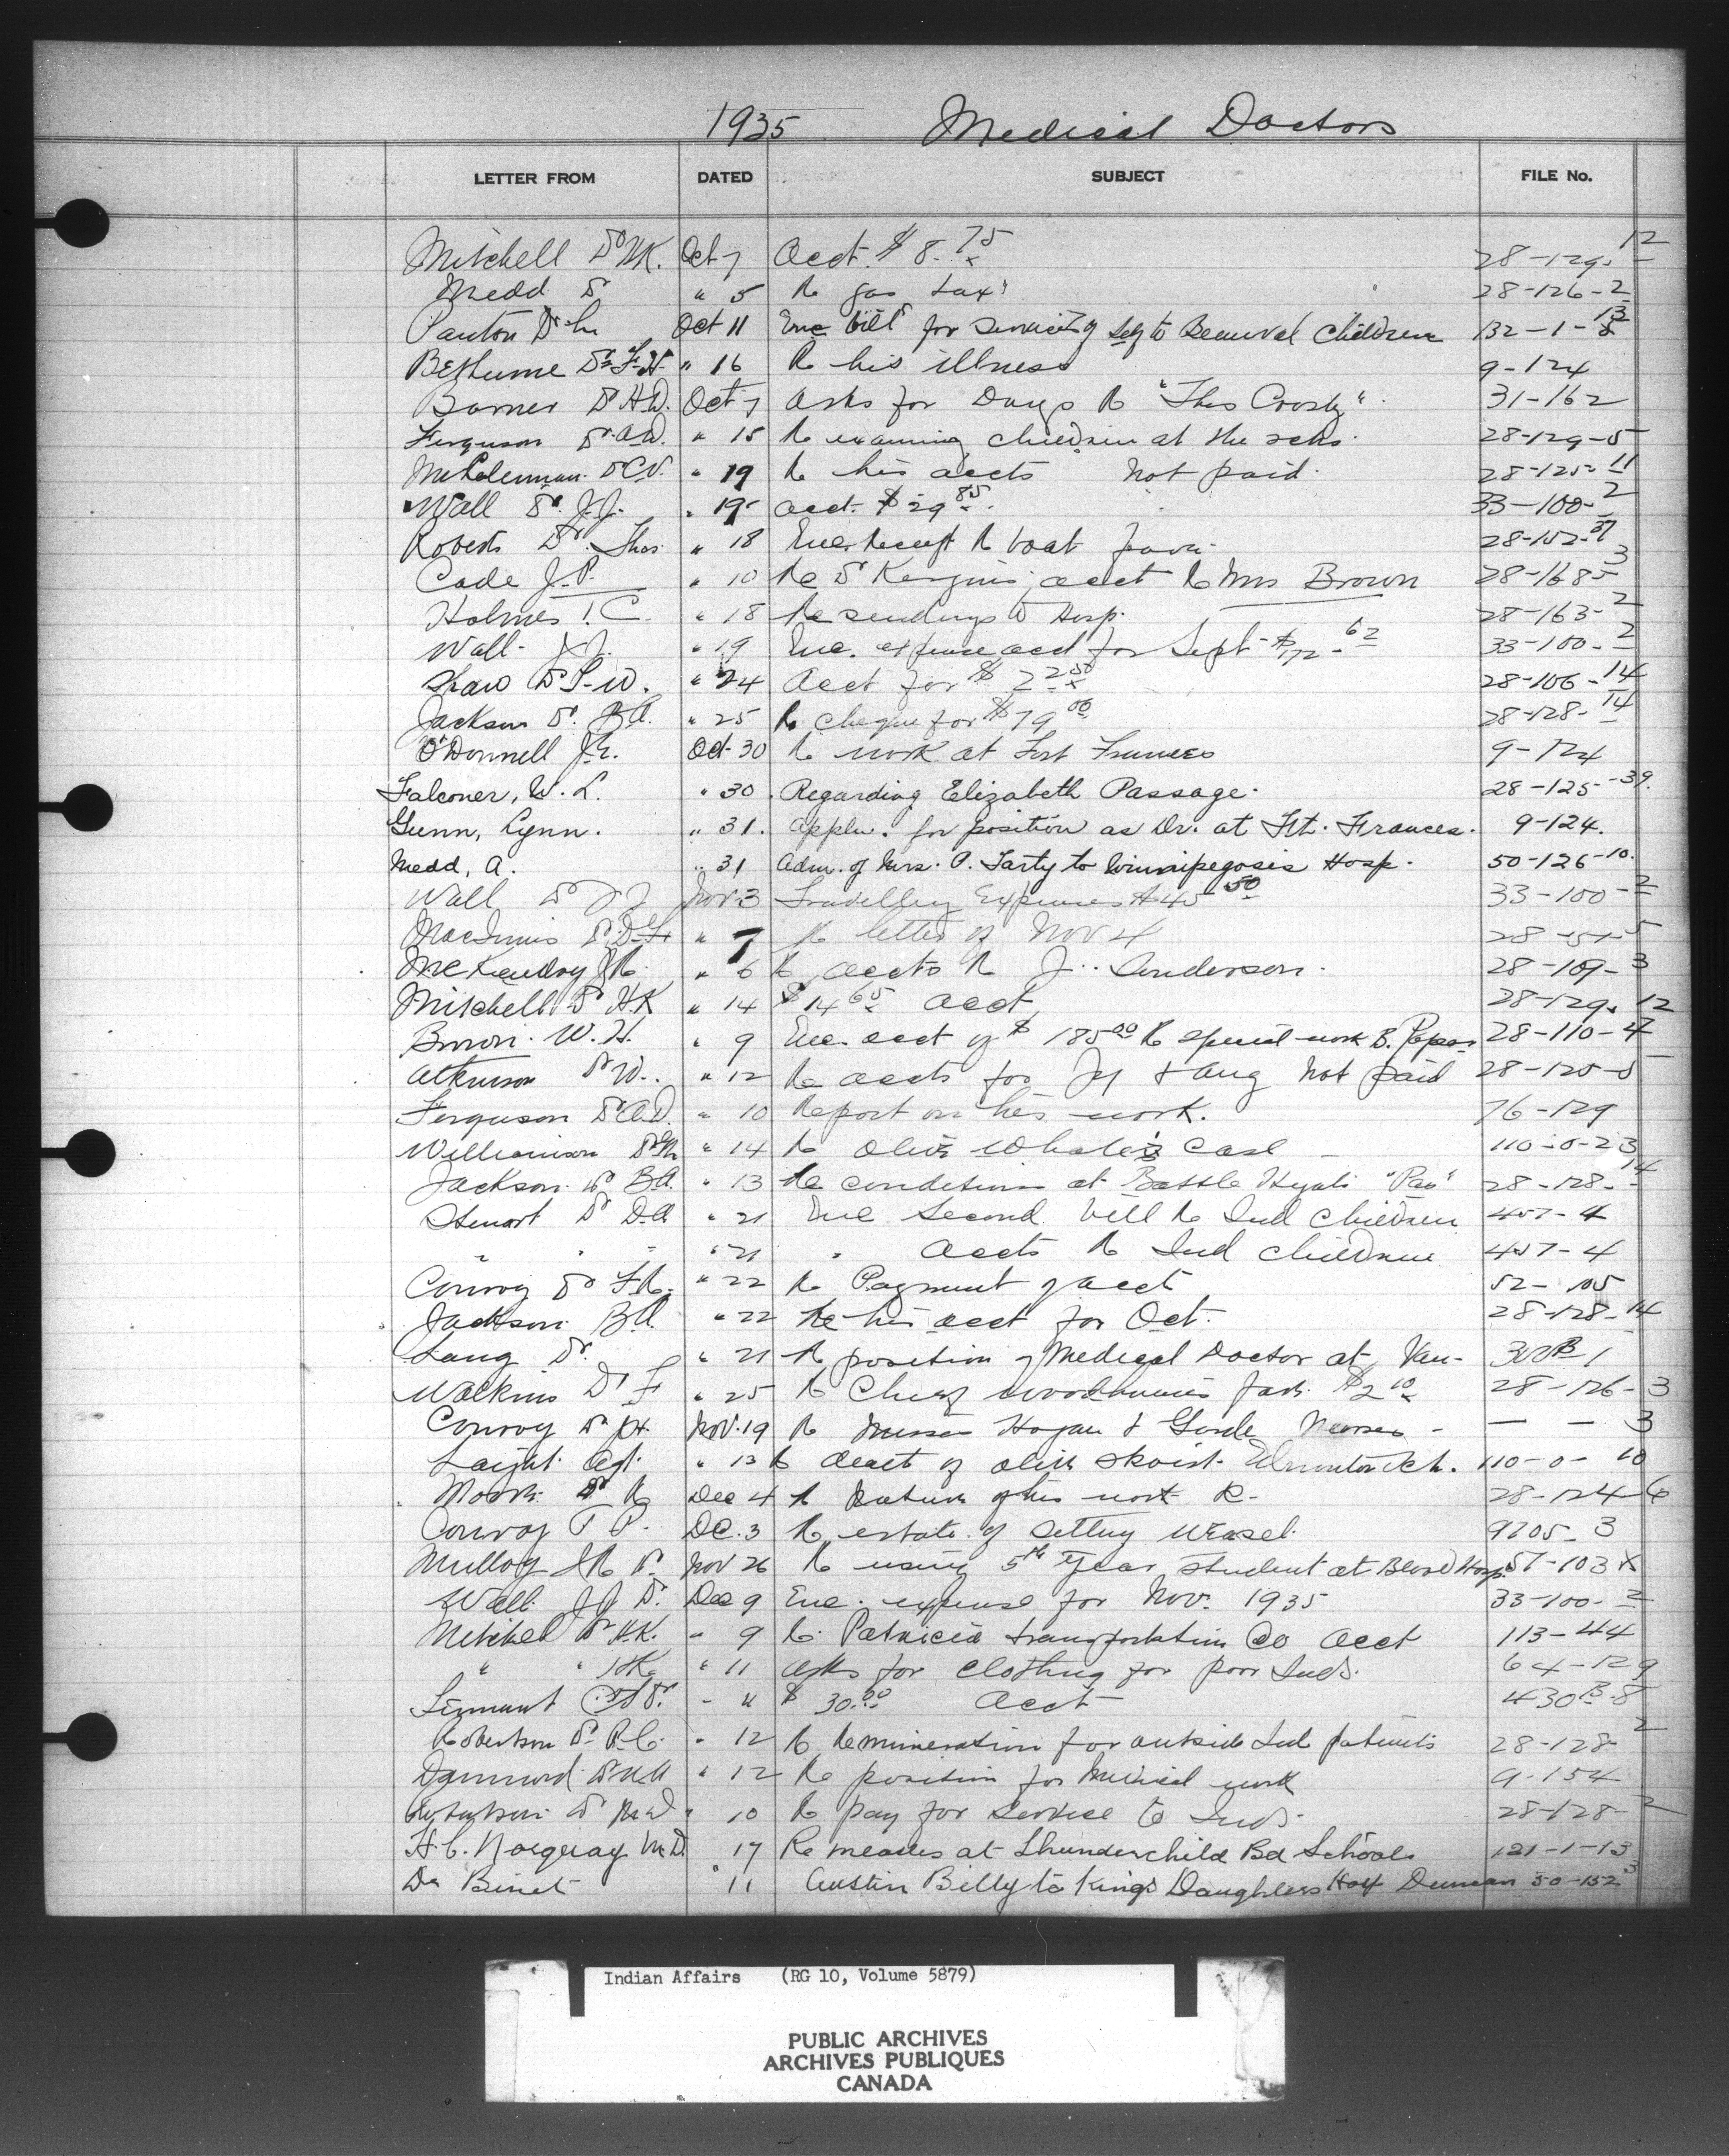 1935 Medical Doctors
LETTER FROM DATED SUBJECT FILE No.
Mitchell Dr H.K. Oct 7 Acct. $8.75 28-129-12
Medd Dr " 5 Re gas tax 28-126-2
Panton Dr Oct 11 Enc bill for services to Beauval Children 132-1-13
Bethune Dr F.H. " 16 Re his illness 9-124
Dr H.D. Oct 7 Asks for Drugs Re "Thos Crosby" 31-162
Ferguson Dr A.D. " 15 Re examining children at the schs. 28-129-5
Dr C.V. " 19 Re his accts Not paid. 28-125-11
Wall Dr. J.J. " 19 acct. $29.85 33-100-2
Roberts Dr. Thos. " 18 Enc. Receipt Re boat 28-152-37
Cade J.P. " 10 Re Dr Kergin's acct Re Mrs Brown 28-168-3
Holmes T.C. " 18 Re sending to Hosp. 28-163-2
Wall J.J. " 19 Enc. expense acct for Sept $172.62 33-100-2
Shaw Dr T.W. " 24 Acct for $ 28-106-14
Jackson Dr. B.A. " 25 Re cheque for $79.00 28-128-14
O'Donnell J.E. Oct 30 Re work at Fort Frances 9-124
Falconer, W. L. " 30 Regarding Elizabeth Passage. 28-125-39.
Gunn, Lynn. " 31. Appln. for position as Dr. at Ft. Frances. 9-124.
Medd, A. " 31 Adm. of Mrs. P. Tarty to Winnipegosis Hosp. 50-126-10.
Wall Dr J J Nov 3 Travelling Expenses $45.50 33-100-2
MacInnis Dr D.F. " 7 Re letter of Nov 4 28-51-5
McKendry J.R. " 6 Re accts Re J. Anderson. 28-109-3
Mitchell Dr H.K " 14 $14.65 acct 28-129-12
Brown. W.H. " 9 Enc. acct of $185.00 Re special work B. 28-110-4
Atkinson Dr W. " 12 Re accts for Jy & Aug Not paid 28-125-5
Ferguson Dr A.D. " 10 Report on his work. 76-129
Williamson Dr " 14 Re Olive case 110-0-23
Jackson Dr B.A. " 13 Re conditions at Battle "Pas" 28-128-14
Stewart Dr D.A " 21 Enc second bill Re Ind Children 457-4
" " " " 21 " Accts Re Ind Children 457-4
Conroy Dr F.R. " 22 Re Payment of acct 52-105
Jackson B.A. " 22 Re his acct for Oct. 28-128-14
Lang Dr. " 21 Re position of Medical Doctor at Van- 300B 1
Watkins Dr F " 25 Re Chief 28-126-3
Conroy Dr Nov. 19 Re Misses Hogan & Nurses - — — 3
Laight Agt. " 13 Re death of Edmonton Sch. 110-0-10
Moore Dr R Dec 4 Re Nature of his work 28-124-6
Conroy De. 3 Re estate of Setting Weasel. 9205-3
Mulloy J R Dr. Nov 26 Re using 5th Year student at Blood Hosp. 51-103 X
Wall. J J Dr. Dec 9 Enc. expense for Nov. 1935 33-100-2
Mitchel Dr H.K. " 9 Re Patricia transportation Co acct 113-44
" " H.K. " 11 Asks for clothing for poor Inds. 64-129
Tennant Dr. " 11 $30.00 Acct 430B-8
Robertson Dr. " 12 Re Remuneration for outside Ind patients 28-128-2
Dr " 12 Re position for Medical work 9-154
Dr " 10 Re pay for service to Inds. 28-128-2
H.C. Norquay M.D. 17 Re measles at Thunderchild Bd Schools 121-1-13
Dr Binet " 11 Austin Billy to King's Daughters Hosp Duncan 50-152-3
Indian Affairs (RG 10, Volume 5879)
PUBLIC ARCHIVES
ARCHIVES PUBLIQUES
CANADA